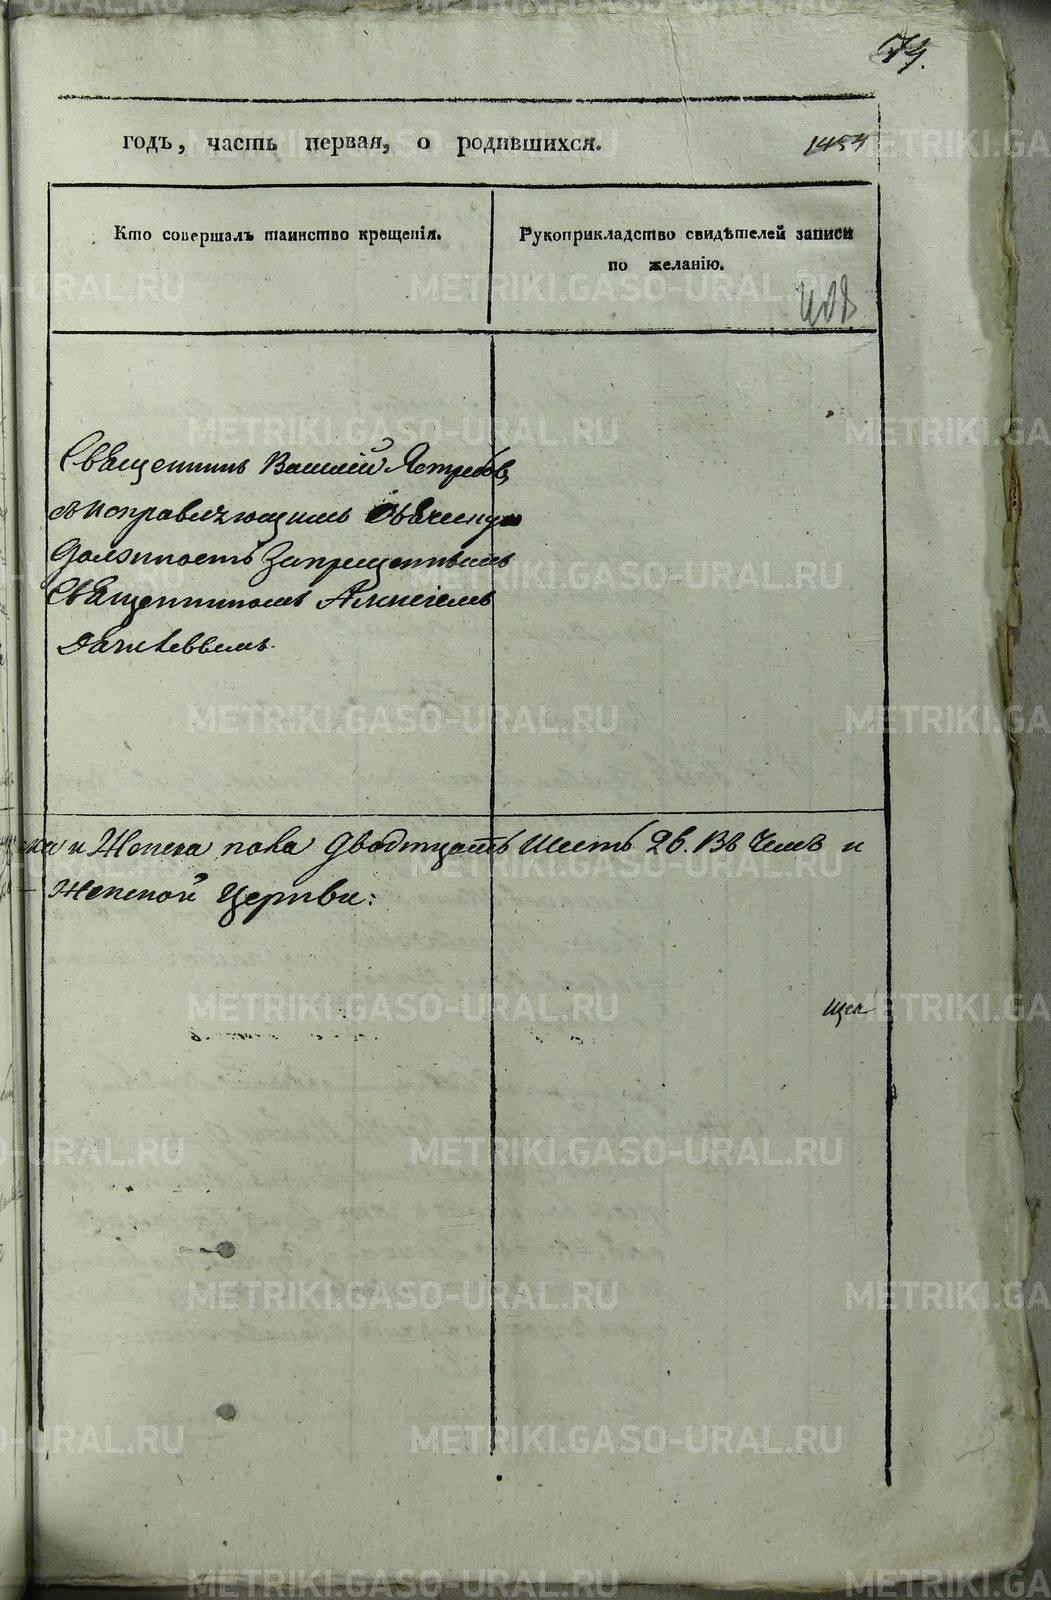 74.
годъ, часть первая, о родившихся. 1454
Кто совершалъ таинство крещенія.
Рукоприкладство свидѣтелей записи
по желанію.
Священникъ Василій Ястребовъ
съ исправляющимъ дьячкую
должность Запрещеннымъ
Священникомъ Алексіемъ
и Женска пола двадцать шесть 26. Въ
Женской Церкви:
METRIKI.GASO-URAL.RU